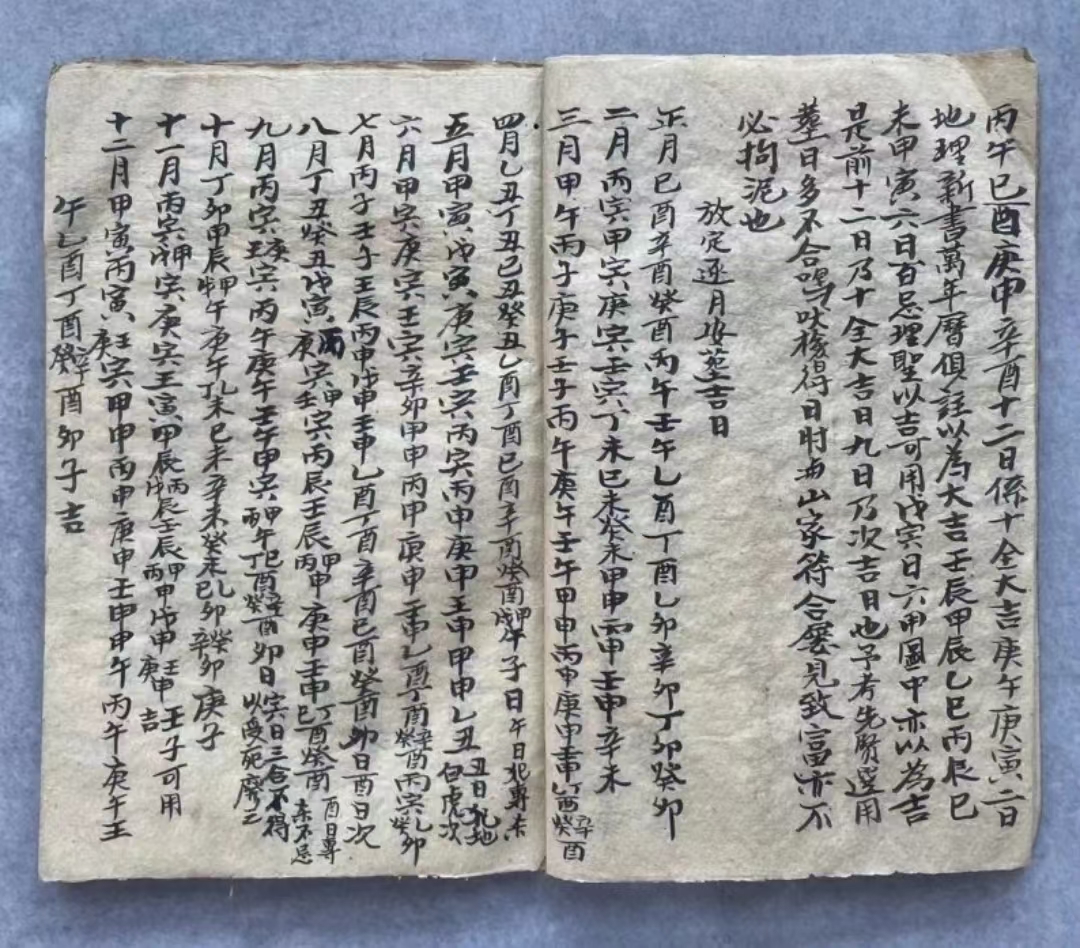 丙午己酉庚申辛酉十二日係十全大吉庚午庚寅二日
地理新書萬年曆俱註以為大吉壬辰甲辰乙巳丙辰己
未甲寅六日百忌理聖以吉可用戊寅日六甲圖中亦以為吉
是前十二日乃十全大吉日九日乃次吉日也予考先賢選用
塟日多不合鳴吠機得日時與山家符合屢見致富亦不
必拘泥也
放定逐月安葬吉日
正月己酉辛酉癸酉丙午壬午乙酉丁酉乙卯辛卯丁卯癸卯
二月丙寅甲寅庚寅壬寅丁未己未癸未甲申丙申壬申辛未
三月甲午丙子庚子壬子丙午庚午壬午甲申丙申庚申壬申乙酉辛酉癸酉
四月乙丑丁丑己丑癸丑乙酉丁酉己酉辛酉癸酉甲午戊午子日午日犯專未
五月甲寅戊寅庚寅壬寅丙寅丙申庚申壬申甲申乙丑丑日犯地白虎次
六月甲寅庚寅壬寅辛卯甲申丙申庚申壬申乙酉丁酉辛酉癸酉丙寅乙卯癸卯
七月丙子壬子壬辰丙申戊申壬申乙酉丁酉辛酉己酉癸酉卯日酉日次
八月丁丑癸丑戊寅丙寅庚寅甲寅壬寅丙辰壬辰甲申丙申庚申壬申丁酉己酉癸酉酉日專未不忌
九月丙寅庚寅壬寅丙午庚午壬午甲寅甲午丙午乙酉己酉辛酉癸酉卯日寅日三合不得以受死廢之
十月丁卯甲辰甲午戊午庚午乙未丁未己未辛未癸未乙卯己卯癸卯辛卯庚子
十一月丙寅甲寅戊寅庚寅壬寅甲辰丙辰戊辰壬辰甲申丙申戊申壬申庚申壬子可用吉
十二月甲寅丙寅壬寅庚寅甲申丙申庚申壬申甲午丙午庚午壬
午乙酉丁酉辛酉癸酉卯子吉